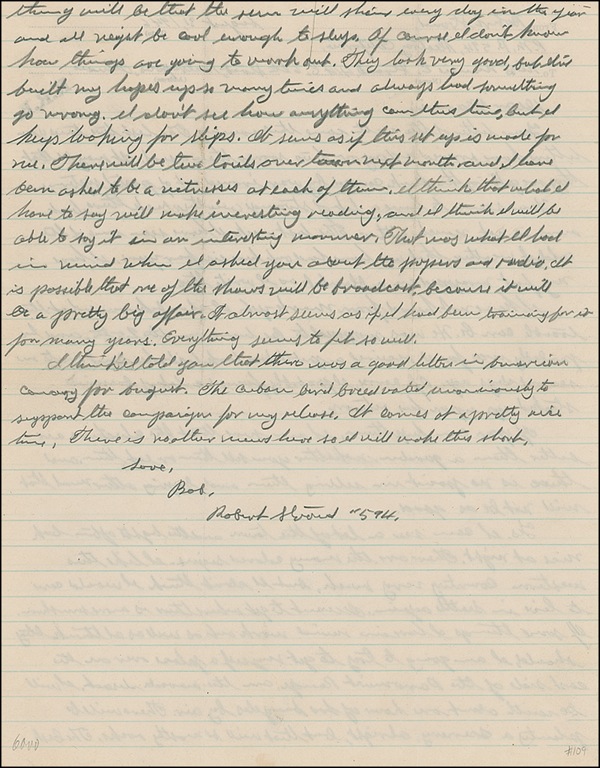 thing will be that the sun will shine every day in the year
and all night be cool enough to sleep. Of course I don't know
how things are going to work out. They look very good, but I've
built my hopes up so many times and always had something
go wrong. I don't see how anything can this time, but I
keep looking for slips. It seems as if this set up is made for
me. There will be two trails over town next month and I have
been asked to be a witnesses at each of them. I think that what I
have to say will make interesting reading, and I think I will be
able to say it in an interesting manner. That was what I had
in mind when I asked you about the papers and radio. It
is possible that one of the shows will be broadcast, because it will
be a pretty big affair. It almost seems as if I had been training for it
for many years. Everything seems to fit so well.
I think I told you that there was a good letter in American
Canary for August. The Cuban bird breed voted unaniously to
support the campaign for my release. It comes at a pretty nice
time. There is no other news here so I will make this short.
Love,
Bob.
Robert Stroud #594.
#109